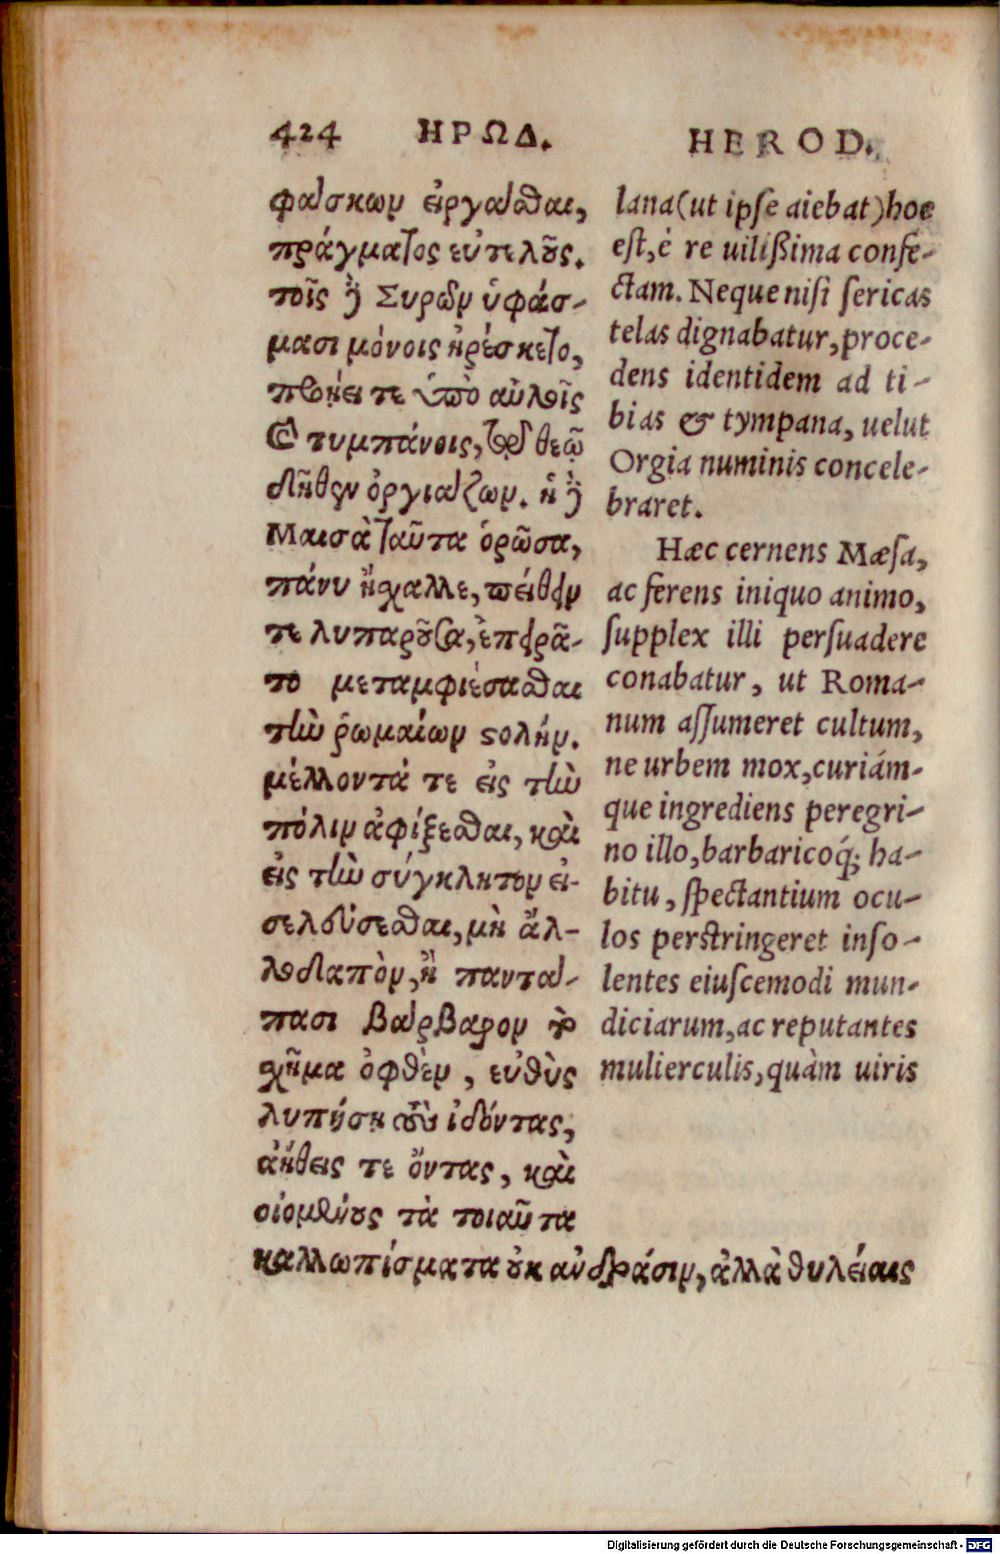 424 ΗΡΩΔ. HEROD.
φάσκων εἰργάσθαι,
πράγματος εὐτελοῦς.
τοῖς δὲ Συρῶν ὑφάσ-
μασι μόνοις ἠρέσκετο,
προῄει τε ὑπὸ αὐλοῖς
καὶ τυμπάνοις, τῷ θεῷ
δῆθεν ὀργιάζων. ἡ δὲ
Μαισὰ ταῦτα ὁρῶσα,
πάνυ ἤχαλλε, πείθειν
τε λυπαροῦσα, ἐπειρᾶ-
το μεταμφιέσασθαι
τὴν ῥωμαίων στολήν.
μέλλοντά τε εἰς τὴν
πόλιν ἀφίξεσθαι, καὶ
εἰς τὴν σύγκλητον εἰ-
σελεύσεσθαι, μὴ ἀλ-
λοδαπὸν, ἢ παντά-
πασι βάρβαρον τὸ
χῆμα ὀφθὲν, εὐθὺς
λυπήσῃ τοὺς ἰδόντας,
ἀήθεις τε ὄντας, καὶ
οἰομένους τὰ τοιαῦτα
καλλωπίσματα οὐκ ἀνδράσιν, ἀλλὰ θυλείαις
lana (ut ipse aiebat) hoc
est, è re uilißima confe-
ctam. Neque nisi sericas
telas dignabatur, proce-
dens identidem ad ti-
bias & tympana, uelut
Orgia numinis concele-
braret.
Hæc cernens Mæsa,
ac ferens iniquo animo,
supplex illi persuadere
conabatur, ut Roma-
num assumeret cultum,
ne urbem mox, curiám-
que ingrediens peregri-
no illo, barbaricoq́; ha-
bitu, spectantium ocu-
los perstringeret inso-
lentes eiuscemodi mun-
diciarum, ac reputantes
mulierculis, quàm uiris
Digitalisierung gefördert durch die Deutsche Forschungsgemeinschaft - DFG